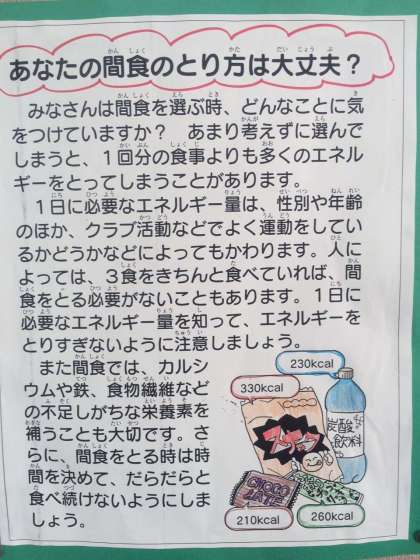 あなたの間食のとり方は大丈夫？
みなさんは間食を選ぶ時、どんなことに気
をつけていますか？　あまり考えずに選んで
しまうと、１回分の食事よりも多くのエネル
ギーをとってしまうことがあります。
１日に必要なエネルギー量は、性別や年齢
のほか、クラブ活動などでよく運動をしてい
るかどうかなどによってもかわります。人に
よっては、３食をきちんと食べていれば、間
食をとる必要がないこともあります。１日に
必要なエネルギー量を知って、エネルギーを
とりすぎないように注意しましょう。
また間食では、カルシ
ウムや鉄、食物繊維など
の不足しがちな栄養素を
補うことも大切です。さ
らに、間食をとる時は時
間を決めて、だらだらと
食べ続けないようにしま
しょう。
230kcal
330kcal
炭酸
飲料
CHOCO
LATE
210kcal
260kcal